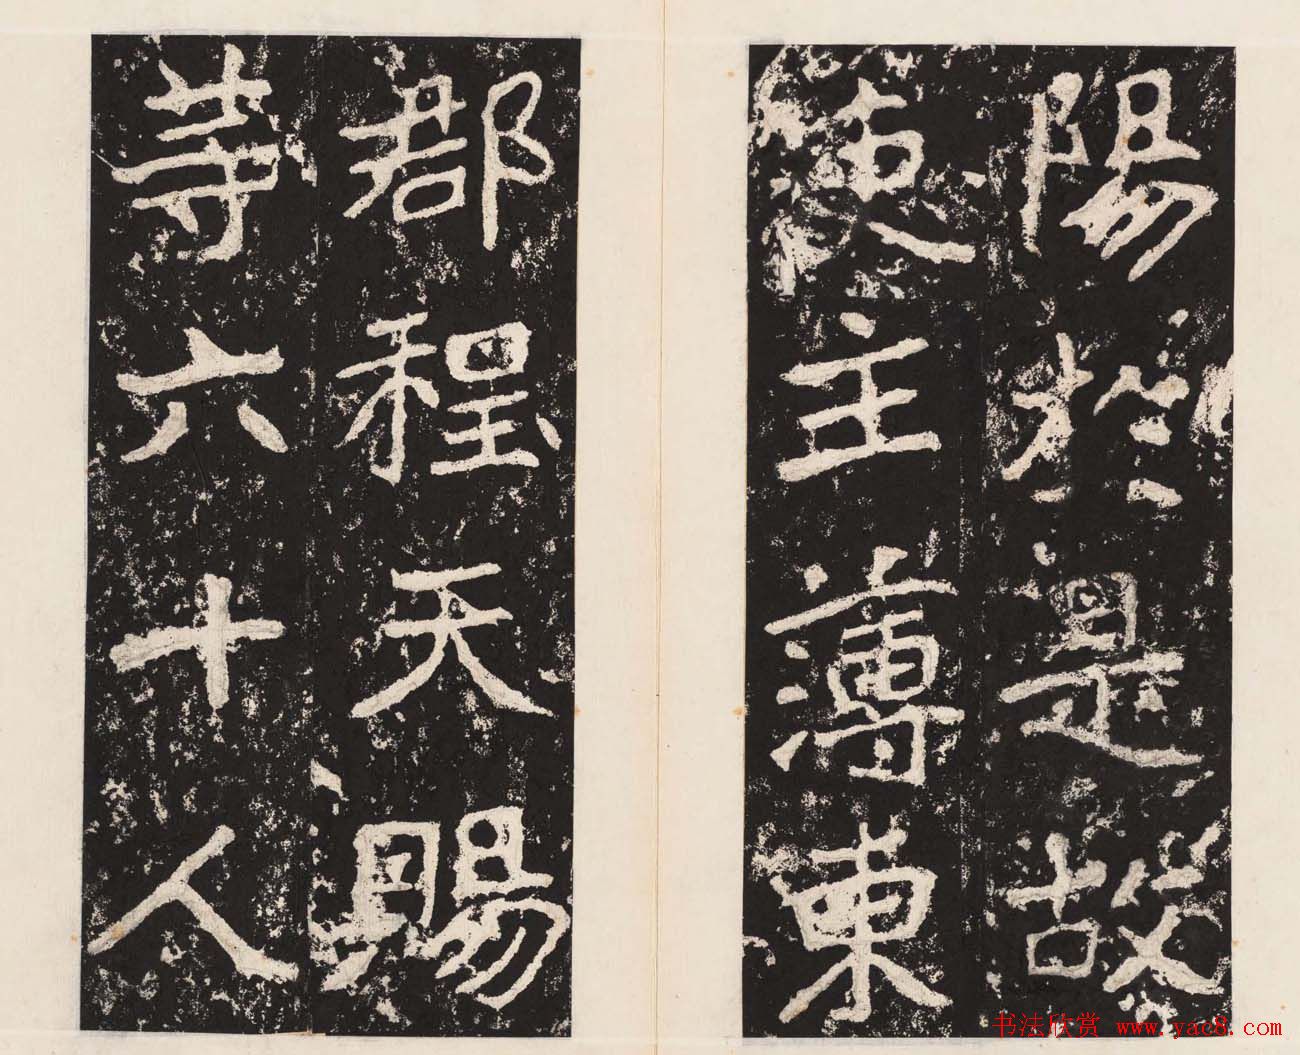 陽於是故
吏主薄東
郡程天賜
等六十人
书法欣赏 www.yac8.com